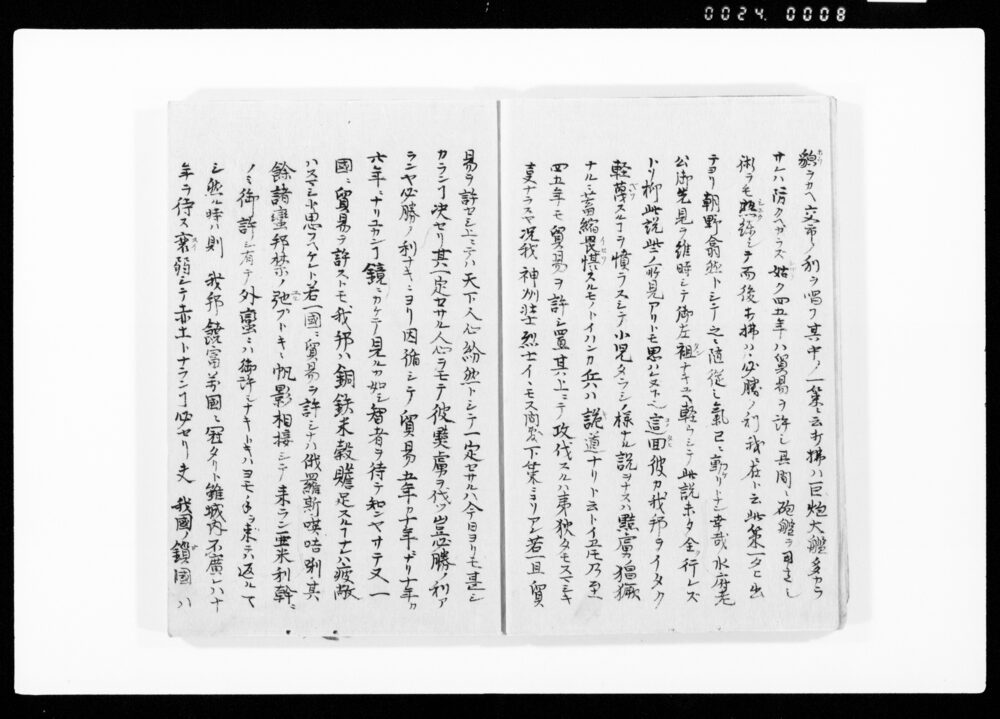 0024. 0008
貌ヲカヘ交市ノ利ヲ唱フ其中ノ一策ニ云打拂ハ巨炮大艦多カラ
サレハ防クヘカラス姑ク四五年ハ貿易ヲ許シ其間ニ砲艦ヲ司
術ヲモ熟シテ而後打拂ハ必勝ノ利我ニ在ト云此策一タヒ出
テヨリ朝野翕然トシテ之ニ隨従シ氣已ニ動ケリトナン幸哉水府老
公御先見ヲ維時シテ御左袒ナキユヘ軽々シク此説未タ全ク行レス
ト乃柳此説些ノ所見アリトモ思ハレス這回彼カ我邦ヲイタク
軽蔑スルヿヲ憤ラスシテ小児タラシノ様ナル説ヲナスハ黠虜ノ猖獗
ナルニ蓄縮畏惧スルモノトイハンカ兵ハ詭道ナリト云トイヘトモ乃至
四五年モ貿易ヲ許シ置其上ニテ攻伐スルハ夷狄タモスマシキ
夏ナラスヤ况我神州壮烈士イ下策ニヨリアン若一旦貿
易ヲ許セシ上ニテハ天下人心紛然トシテ一定セサルハ今日ヨリモ甚シ
カランヿ决セリ其一定セサル人心ヲモテ彼奰虜ヲ伐ツ豈必勝ノ利ア
ランヤ必勝ノ利ナキニヨリ因循シテ貿易五年カ十年ナリ十年カ
六年ニナリユカンヿ鏡ニカケテ見ルカ如シ智者ヲ待テ知ンヤサテ又一
國ニ貿易ヲ許ストモ我邦ハ銅鉄米穀贍足スルナレハ疲敝
ハスマシト思フヘケレト若一國ニ貿易ヲ許シナハ俄羅斯暎咭唎其
餘諸蛮邦禁ノ弛フトキハ帆影相接シテ来ラン亜米利幹ニ
ノミ御許シ有テ外蛮ニハ御許シナキトキハヨモヤ手ヲ束テハ返ルマ
シ然ル時ハ則我邦饒富萬國ニ冠タリト雖城内不廣レハナ
年ヲ待ス衰弱シテ赤土トナランヿ必セリ夫我國ノ鎖國ハ